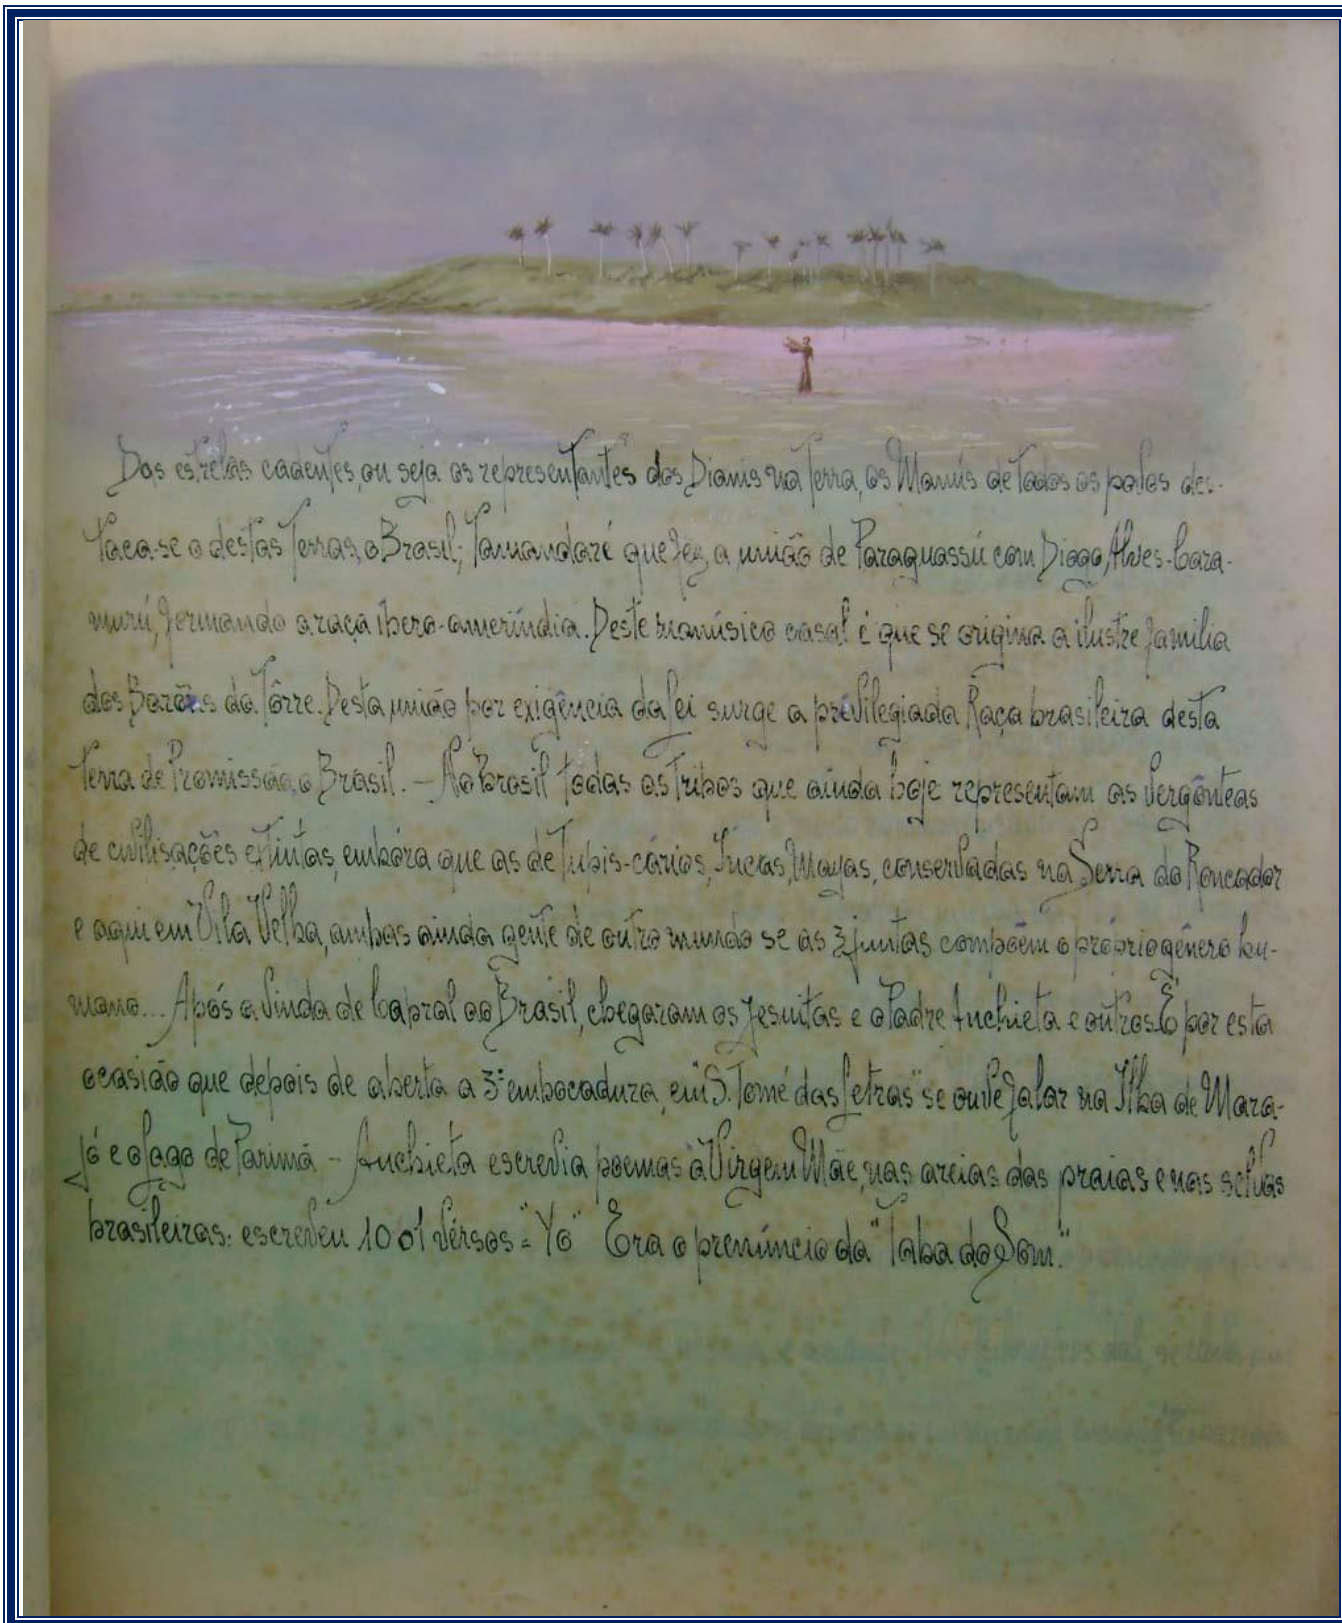 Das estrelas cadentes, ou seja os representantes dos Dianis na Terra, os Manús de todos os polos des-
taca-se o destas Terras, o Brasil; Tamandaré que fez a união de Paraguassú com Diogo Álves-Cara-
murú, formando a raça íbero-ameríndia. Deste manúsico casal é que se origina a ilustre familia
dos Barões da Tôrre. Desta união por exigência da Lei surge a previlegiada Raça brasileira desta
Terra de Promissão, o Brasil. – No Brasil todas as Tribos que ainda hoje representam as vergônteas
de civilisações extintas, embóra que as de Tupis-cários, Incas, Mayas, conservadas na Serra do Roncador
e aqui em Vila Velha, ambas ainda gente de outro mundo se as 3 juntas compõem o próprio gênero hu-
mano... Após a vinda de Cabral ao Brasil, chegaram os Jesuitas e o Padre Anchieta e outros. É por esta
ocasião que depois de aberta a 3ª embocadura, em "S. Tomé das Letras" se ouve falar na Ilha de Mara-
jó e o Lago de Parimã – Anchieta escrevia poemas à Virgem Mãe, nas areias das praias e nas selvas
brasileiras: escreveu 1001 vérsos = "Yo" Era o prenúncio da "Taba do Som."